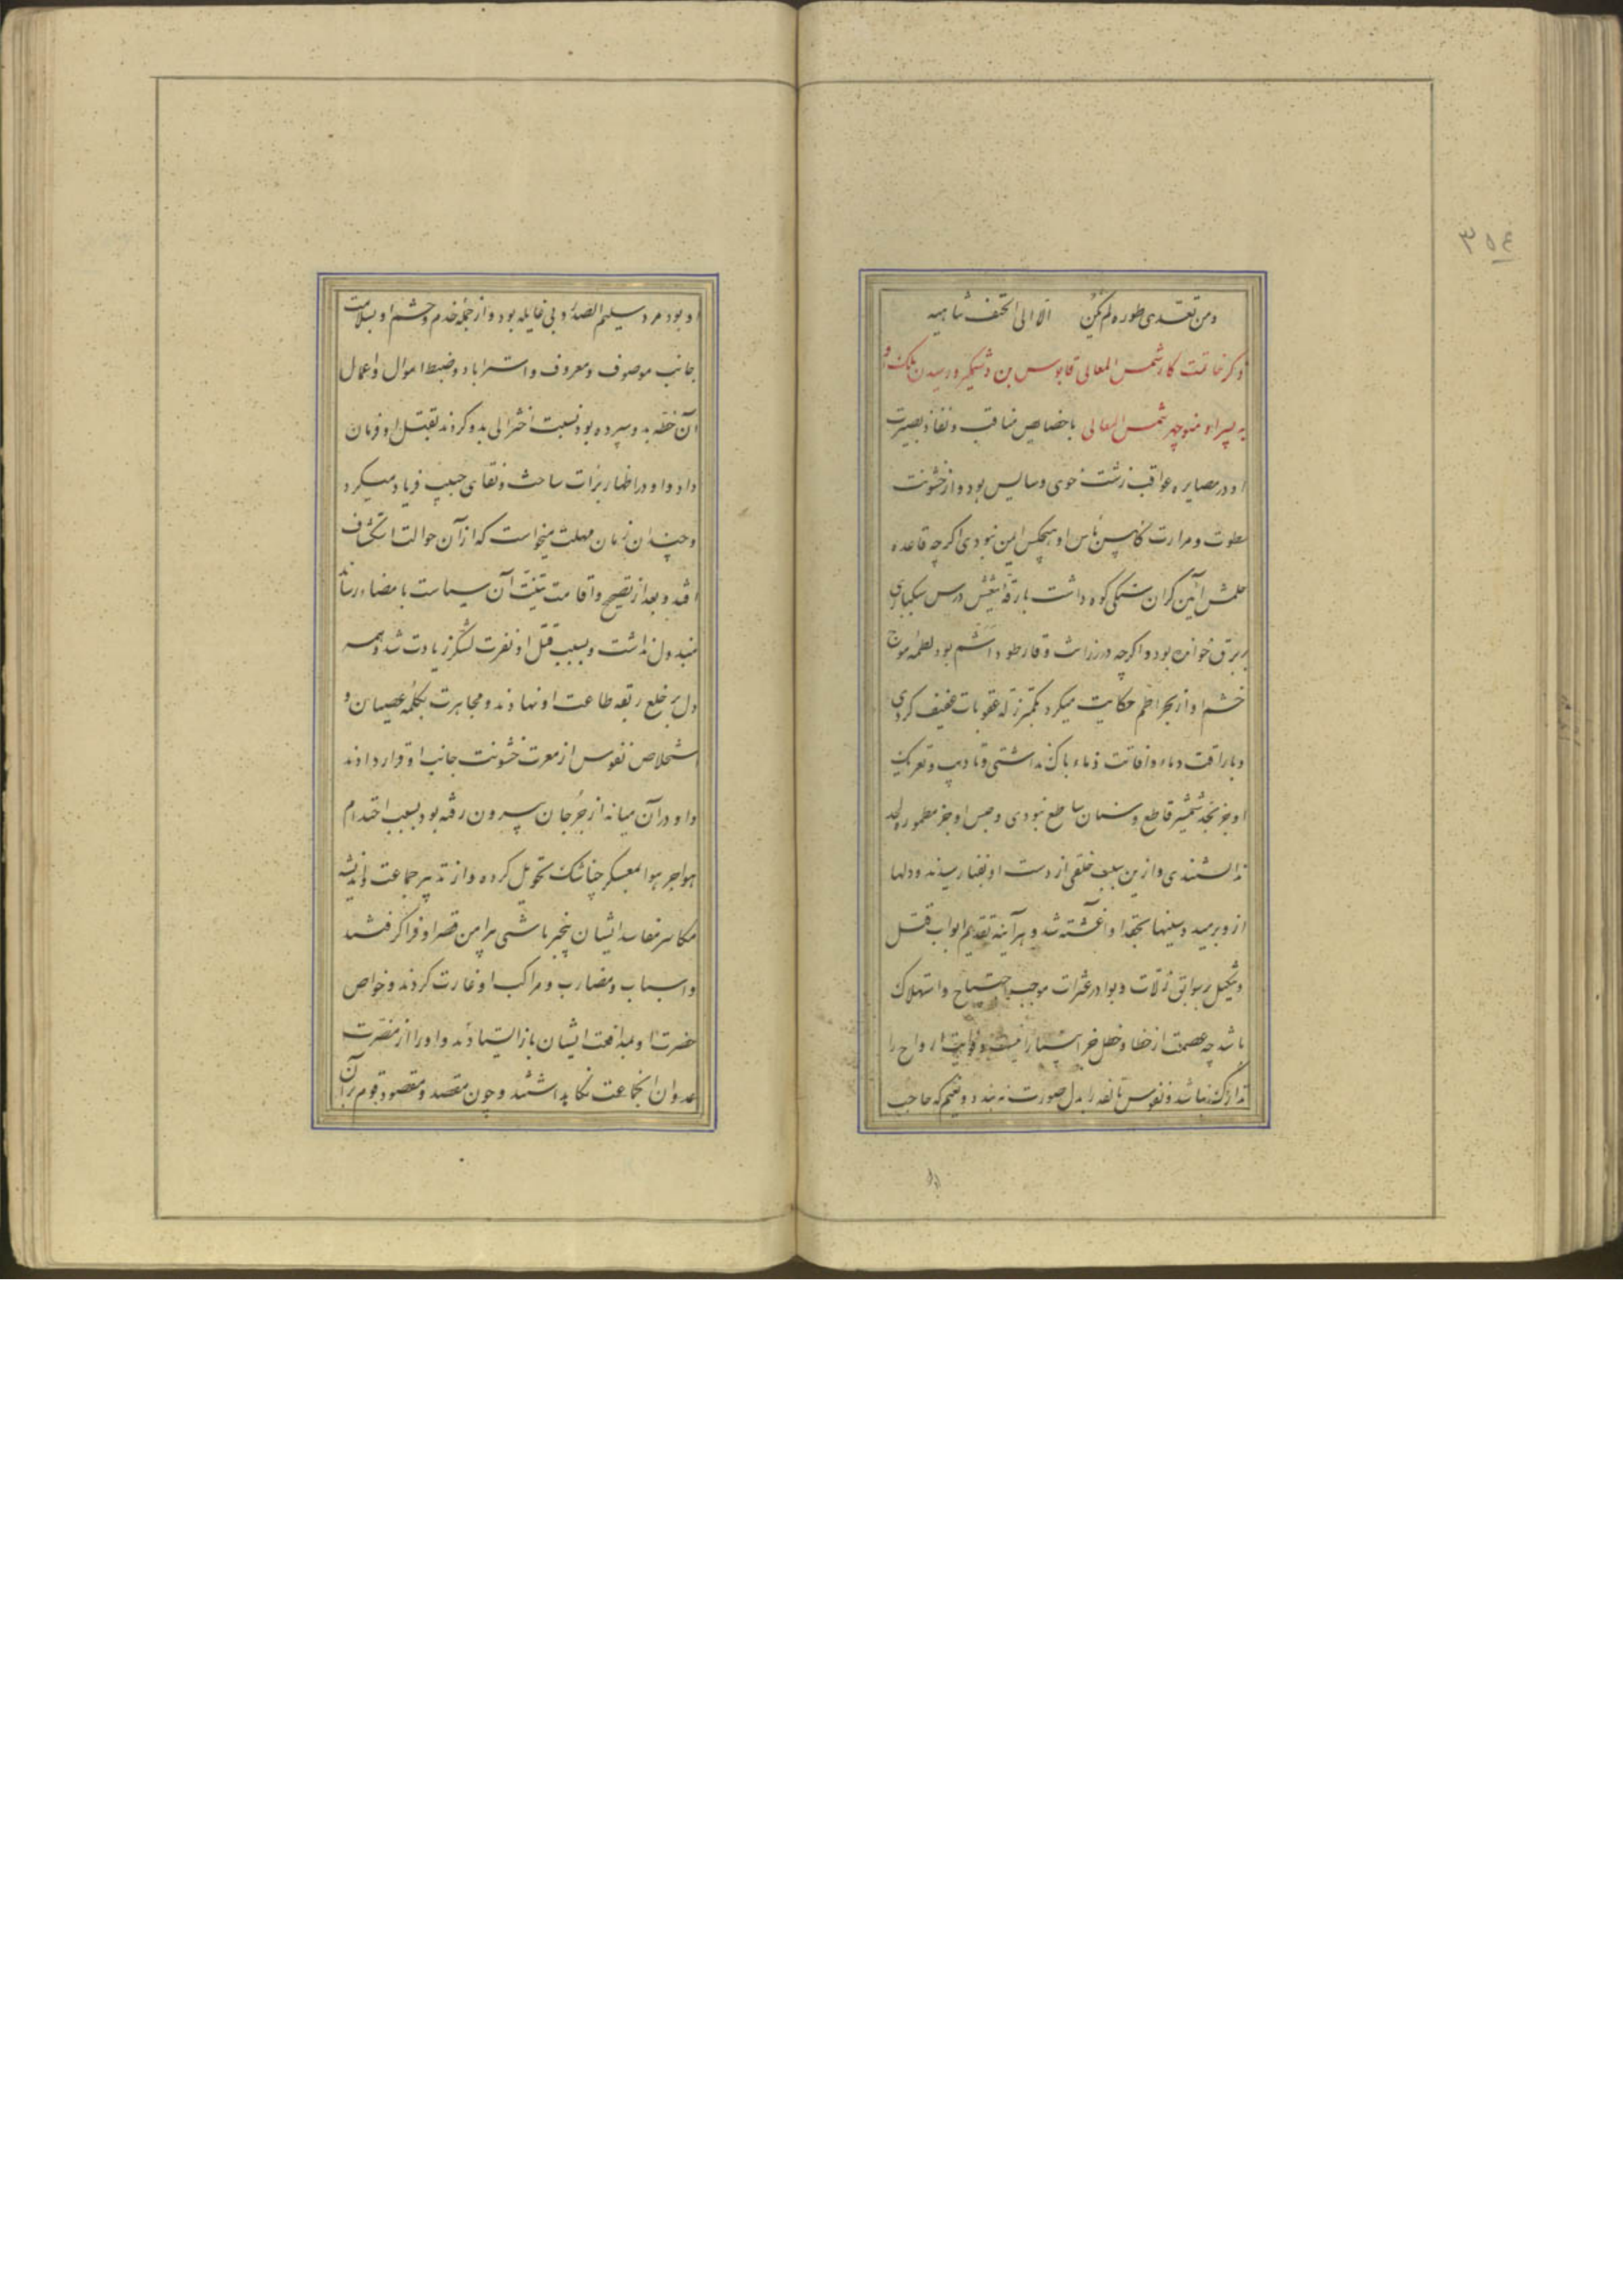 ومن تعدی طوره لم یکن الا الی الحتف تناهیه
ذکر خاتمت کار شمس المعالی قابوس بن وشمگیر و رسیدن ملک او
به پسر او منوچهر شمس المعالی باخصایص مناقب و نفاذ بصیرت
او در مصایر عواقب زشت خوی و سایس بود و از خشونت
سطوت و مرارت کاس باس او هیچکس ایمن نبودی اگرچه قاعده
حلمش آئین گران سنگی کوه داشت بارقه تیغش درس سبکباری
بر برق خوانده بود و اگرچه در رزانت وقار طود اشم بود لطمه امواج
خشم او از بحر اخضم حکایت میکرد بکمتر زلة عقوبات عنیف کردی
و باراقت دماء و افاتت ذماء باک نداشتی و تادیب و تعریک
او جز بحد شمشیر قاطع و سنان ساطع نبودی و حبس او جز مطموره لحد
ندانستندی و ازین سبب خلقی از دست او بفنا رسیدند و دلها
ازو برمید و سینها بحقد او آغشته شد و هر آینه تقدیم ابواب قتل
و تنکیل بر سوابق زلات و بوادر عثرات موجب اجتیاح و استهلاک
باشد چه عصمت از خطا و خطل جز انبیا را نیست و فوایت ارواح را
تدارک نباشد و نفوس تالفه را بدل صورت نه بندد و نعیم که حاجب
۳۵۴
او بود مرد سلیم الصدر و بی غایله بود و از جمله خدم و حشم او بسلامت
جانب موصوف و معروف و استراباد و ضبط اموال و اعمال
آن خطه بدو سپرده بود نسبت اختزالی بدو کردند بقتل او فرمان
داد و او در اظهار برات ساحت و نقای جیب فریاد میکرد
و چندان زمان مهلت میخواست که از آن حوالت استکشاف
افتد و بعد از تصحیح و اقامت بینت آن سیاست بامضا رساند
مبذول نداشت و بسبب قتل او نفرت لشکر زیادت شد و همه
دل بر خلع ربقه طاعت او نهادند و مجاهرت بکلمه عصیان و
استخلاص نفوس از معرت خشونت جانب او قرار دادند
و او در آن میانه از جرجان بیرون رفته بود بسبب احتدام
هواجر هوا بمعسکر جناشک تحویل کرده و از تدبیر جماعت و اندیشه
مکاسر مفاسد ایشان بیخبر تا شبی پیرامن قصر او فرا گرفتند
و اسباب و مضارب و مراکب او غارت کردند و خواص
حضرت او بمدافعت ایشان باز ایستادند و او را از مضرت
عدوان آنجماعت نگاه داشتند و چون مقصد و مقصود قوم بر آن